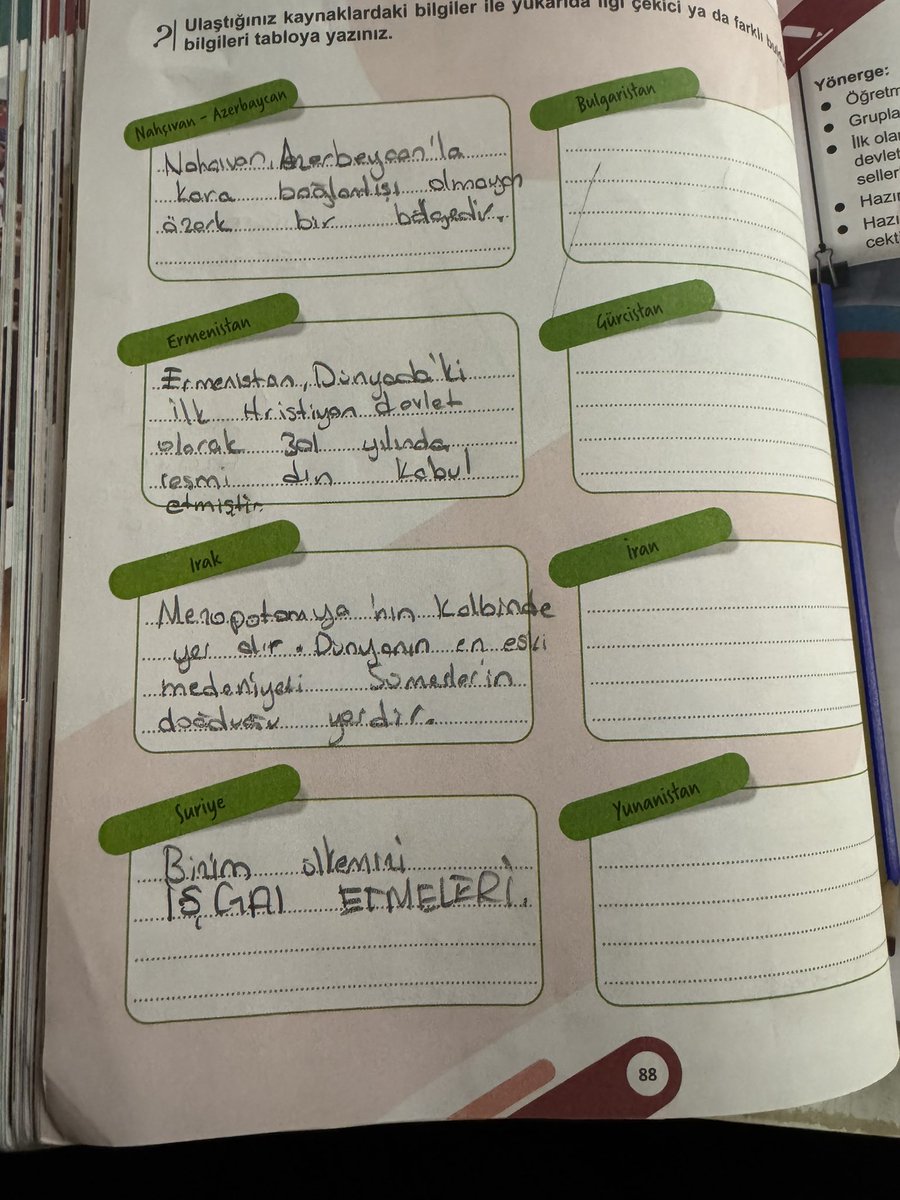 Ulaştığınız kaynaklardaki bilgiler ile yukarıda ilgi çekici ya da farklı
bilgileri tabloya yazınız.
Nahçıvan - Azerbaycan
Nahcıvan, Azerbeycan'la
kara bağlantısı olmayan
özerk bir bölgedir.
Ermenistan
Ermenistan, Dünyada'ki
ilk Hristiyan devlet
olarak 301 yılında
resmi din kabul
etmiştir
Irak
Mezopotamya'nın Kalbinde
yer alır. Dünyanın en eski
medeniyeti Sümerler'in
doğduğu yerdir.
Suriye
Bizim ülkemizi
İŞGAl ETMELERİ.
Bulgaristan
Gürcistan
İran
Yunanistan
88
Yönerge:
Öğretm
Grupla
İlk olar
devlet
seller
Hazır
Hazı
cekti